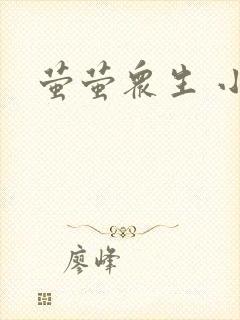 萤萤众生 小
廖峰